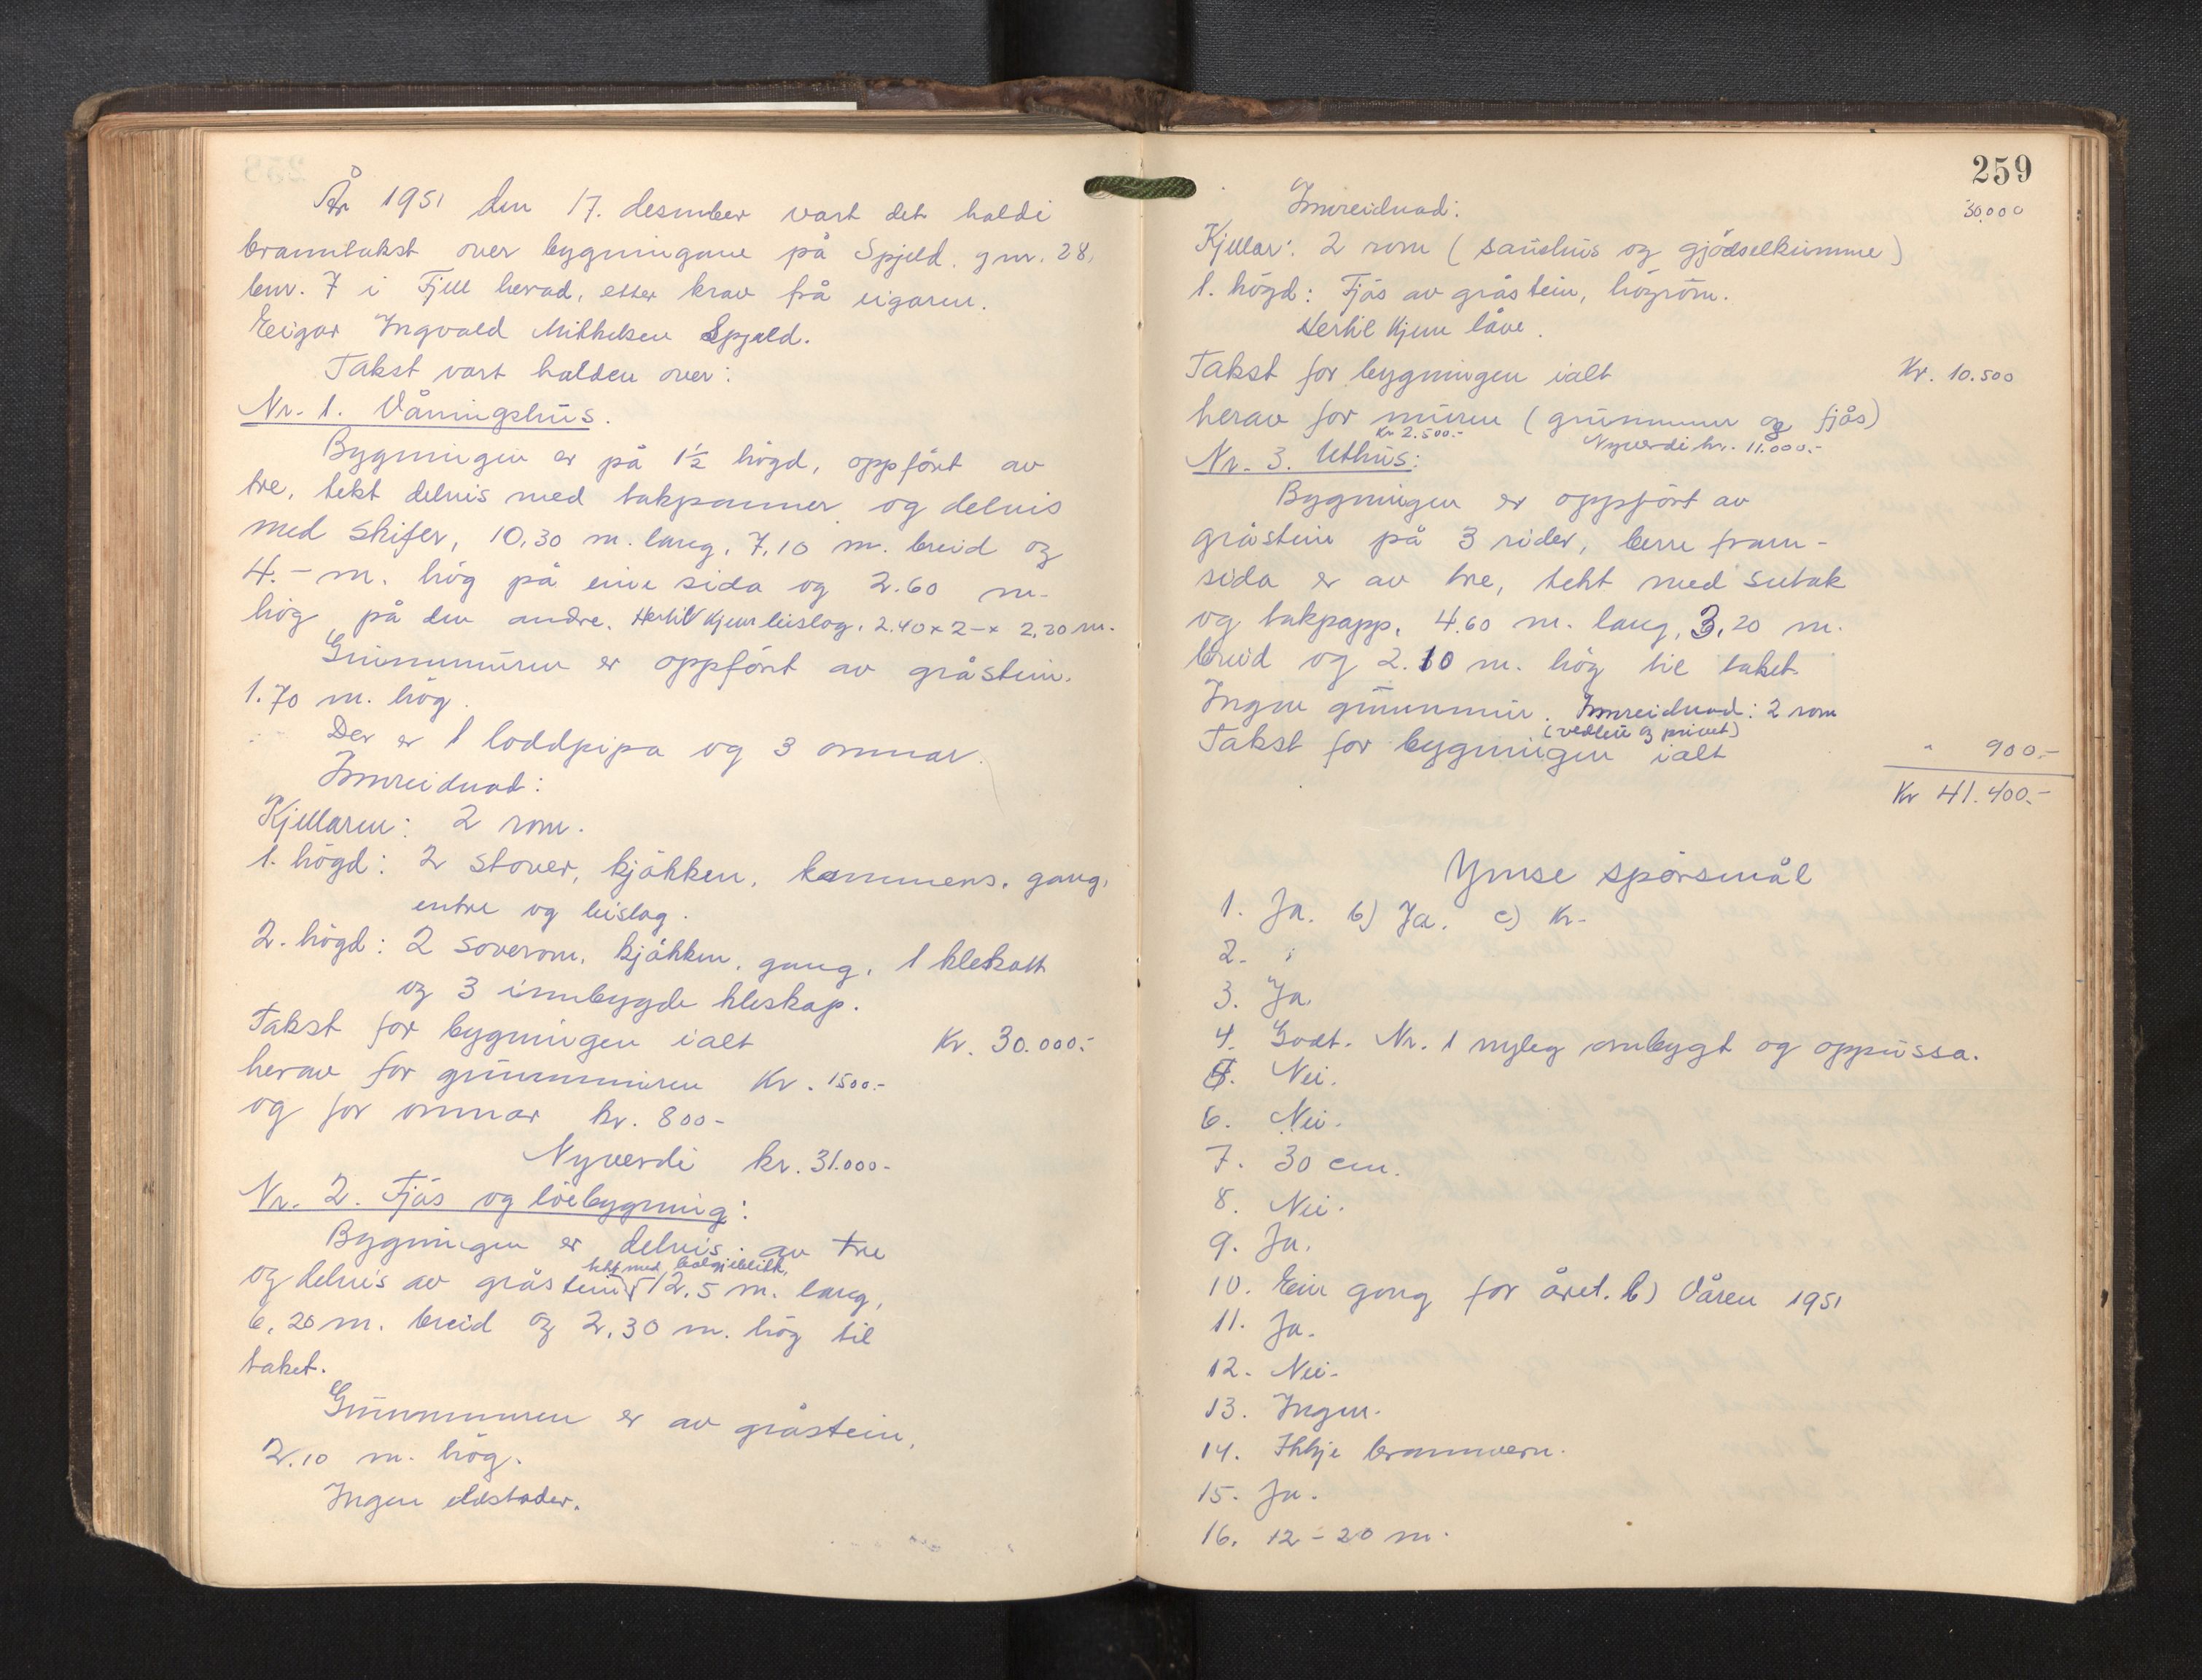 År 1951 den 17. desember vart det haldi
branntakst over bygningane på Spjeld. gnr. 28,
bnr. 7 i Fjell herad, etter krav frå eigaren.
Eeigar Ingvald Mikkelsen Spjeld.
Takst vart halden over:
Nr. 1. Våningshus.
Bygningen er på 1½ högd, oppfört av
tre, tekt delvis med takpanner og delvis
med skifer, 10,30 m. lang, 7,10 m. breid og
4.- m. hög på eine sida og 2.60 m.
hög på den andre. Hertil kjem bislag, 2.40 x 2- x 2,20 m.
Grunnmuren er oppfört av gråstein.
1.70 m. hög.
Der er 1 loddpipa og 3 omnar.
Innreidnad:
Kjellaren: 2 rom.
1. högd: 2 stover, kjökken, kammers. gang,
entre og bislag.
2. högd: 2 soverom, kjökken, gang, 1 klekott
og 3 innbygde kleskap.
Takst for bygningen ialt Kr. 30.000.-
herav for grunnmuren Kr. 1500.-
og for omnar kr. 800-
Nyverdi kr. 31.000-
Nr. 2. Fjös og löebygning:
Bygningen er delvis av tre
tekt med bölgjeblikk,
og delvis av gråstein 12,5 m. lang,
6,20 m. breid og 2,30 m. hög til
taket.
Grunnmuren er av gråstein,
2.10 m. hög.
Ingen eldstader.
259
30.000
Innreidnad:
Kjellar: 2 rom (sauehus og gjödselkumme)
1. högd: Fjös av gråstein, högrom.
Hertil kjem låve.
Takst for bygningen ialt Kr. 10.500
herav for muren (grunnmur og fjös)
Kr 2.500.- Nyverdi kr. 11.000.-
Nr. 3. Uthus:
Bygningen er oppfört av
gråstein på 3 sider, berre fram-
sida er av tre, tekt med sutak
og takpapp, 4.60 m. lang, 3,20 m.
breid og 2.10 m. hög til taket.
Ingen grunnmur. Innreidnad: 2 rom
(vedbu og privet)
Takst for bygningen ialt " 900.-
Kr 41.400.-
Ymse spörsmål
1. Ja. b) Ja. c) Kr-
2.
3. Ja.
4. Godt. Nr. 1 nyleg ombygt og oppussa.
5. Nei.
6. Nei.
7. 30 cm.
8. Nei.
9. Ja.
10. Ein gong for året. b) Våren 1951
11. Ja.
12. Nei.
13. Ingen.
14. Ikkje brannvern.
15. Ja.
16. 12 - 20 m.